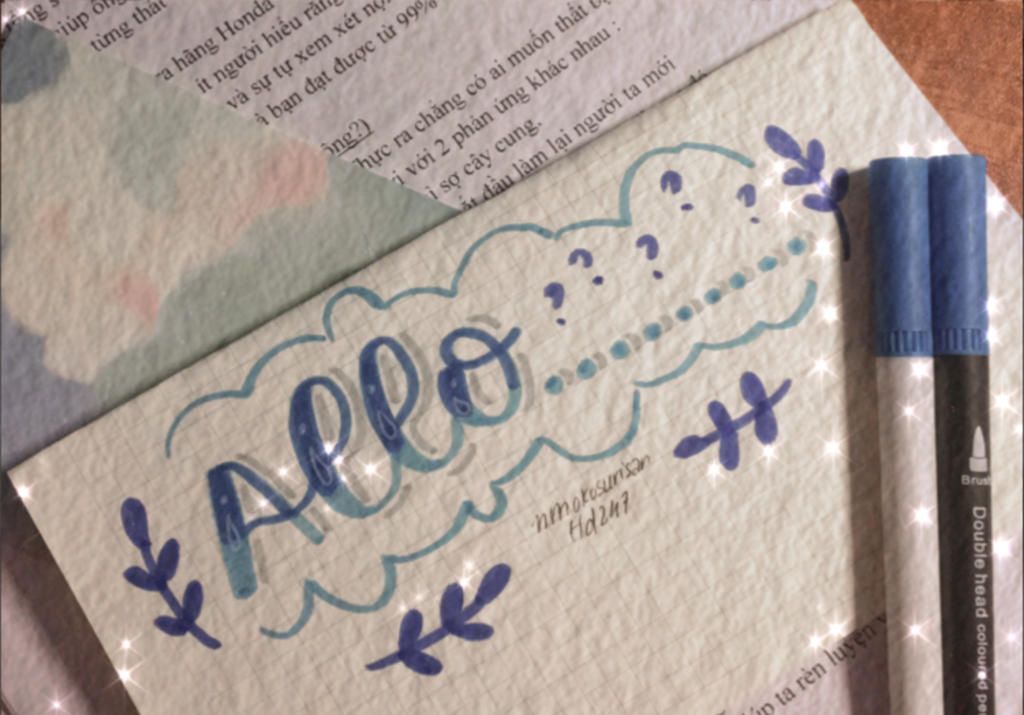 úp ông
từng thái
a hãng Honda
ít người hiểu rằng
và sự tự xem xét nội
à bạn đạt được từ 99%
ông?)
hực ra chẳng có ai muốn thất bạ
i với 2 phản ứng khác nhau :
i sợ cây cung.
ắt đầu làm lại người ta mới
Allo
? ? ? ? ?
Hd247
Brush
Double head coloured pe
úp ta rèn luyện v